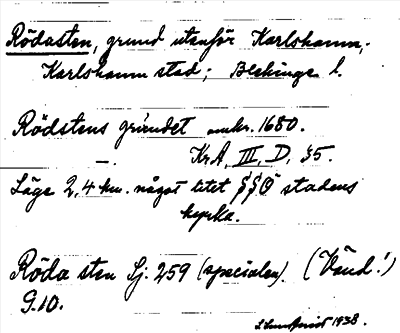 Rödasten, grund utanför Karlshamn,
Karlshamn stad; Blekinge l.
Rödstens grundet omkr. 1680.
—. Kr.A. III, D, 35.
Läge 2,4 km. något litet SSO stadens
kyrka.
Röda sten Sj. 259 (specialen). (Vänd!)
G.10.
1938.